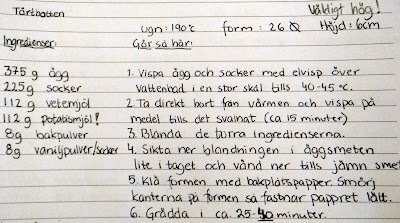 Tårtbotten
Väldigt hög!
ugn: 190°C form: 26 Ø Höjd: 6cm
Ingredienser:
Gör så här:
375 g ägg
225g socker
112 g vetemjöl
112 g potatismjöl!
8g bakpulver
8g vaniljpulver/socker
1. Vispa ägg och socker med elvisp över
vattenbad i en stor skål tills 40-45°C.
2. Ta direkt bort från värmen och vispa på
medel tills det svalnat (ca 15 minuter)
3. Blanda de torra ingredienserna.
4. Sikta ner blandningen i äggsmeten
lite i taget och vänd ner tills jämn smet
5. Klä formen med bakplåtspapper. Smörj
kanterna på formen så fastnar pappret lätt.
6. Grädda i ca 25-30 minuter.